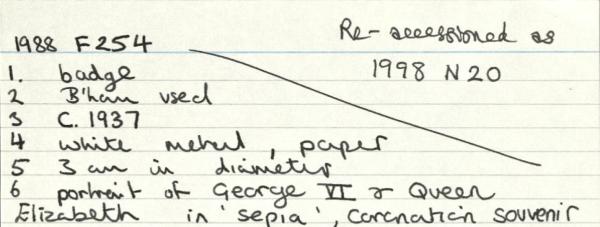 1988 F254
Re-accessioned as
1998 N20
1. badge
2 B'ham used
3 C. 1937
4 white metal, paper
5 3 cm in diameter
6 portrait of George VI & Queen
Elizabeth in 'sepia', coronation souvenir